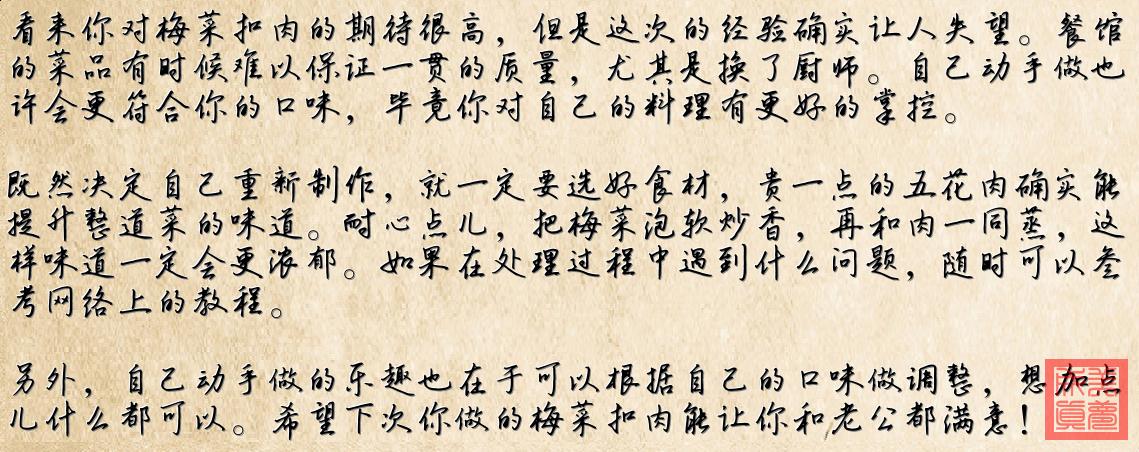 看来你对梅菜扣肉的期待很高，但是这次的经验确实让人失望。餐馆
的菜品有时候难以保证一贯的质量，尤其是换了厨师。自己动手做也
许会更符合你的口味，毕竟你对自己的料理有更好的掌控。
既然决定自己重新制作，就一定要选好食材，贵一点的五花肉确实能
提升整道菜的味道。耐心点儿，把梅菜泡软炒香，再和肉一同蒸，这
样味道一定会更浓郁。如果在处理过程中遇到什么问题，随时可以参
考网络上的教程。
另外，自己动手做的乐趣也在于可以根据自己的口味做调整，想加点
儿什么都可以。希望下次你做的梅菜扣肉能让你和老公都满意！